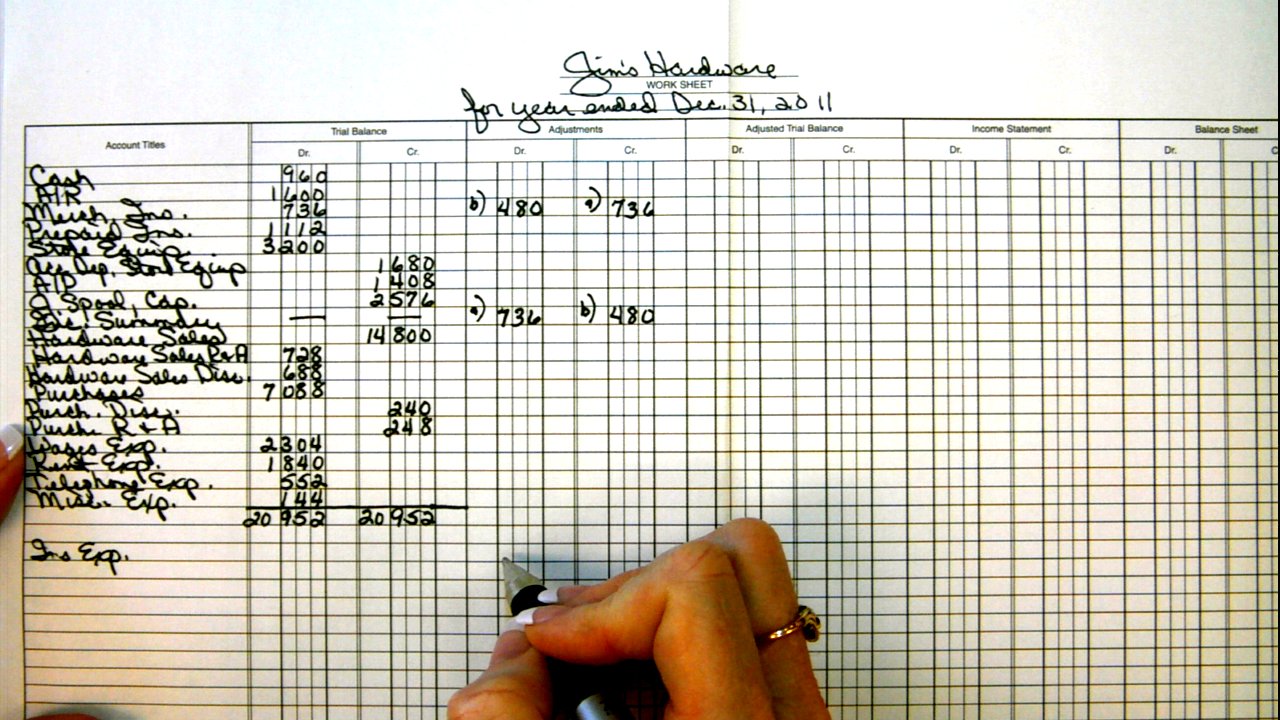 Jim's Hardware
WORK SHEET
for year ended Dec. 31, 2011
Account Titles Trial Balance Adjustments Adjusted Trial Balance Income Statement Balance Sheet
Dr. Cr. Dr. Cr. Dr. Cr. Dr. Cr. Dr. C
Cash 960
A/R 1600
Merch. Inv. 736 b) 480 a) 736
Prepaid Ins. 1112
Store Equip. 3200
Acc Dep, Store Equip 1680
A/P 1408
J. Spool, Cap. 2576
Inc. Summary — — a) 736 b) 480
Hardware Sales 14800
Hardware Sales R+A 728
Hardware Sales Disc. 688
Purchases 7088
Purch. Disc. 240
Purch. R + A 248
Wages Exp. 2304
Rent Exp. 1840
Telephone Exp. 552
Misc. Exp. 144
20952 20952
Ins Exp.